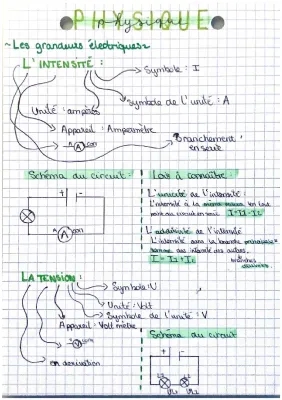 PHYSIQUE
physique
~ Les grandeurs électriques ~
L'INTENSITÉ :
Symbole : I
Symbole de l'unité : A
Unité : ampères
Appareil : Ampèremètre
A COM
Branchement :
en série
Schéma du circuit :
+ -
A COM
Lois à connaître :
L'unicité de l'intensité :
L'intensité à la même valeur en tout
point du circuit en série
L'additivité de l'intensité
L'intensité dans la branche principale =
somme des intensité des autres
branches
LA TENSION :
Symbole : U
Unité : Volt
Symbole de l'unité : V
Appareil : Volt mètre
V COM
en derivation
Schéma du circuit
+ -
L1 L2